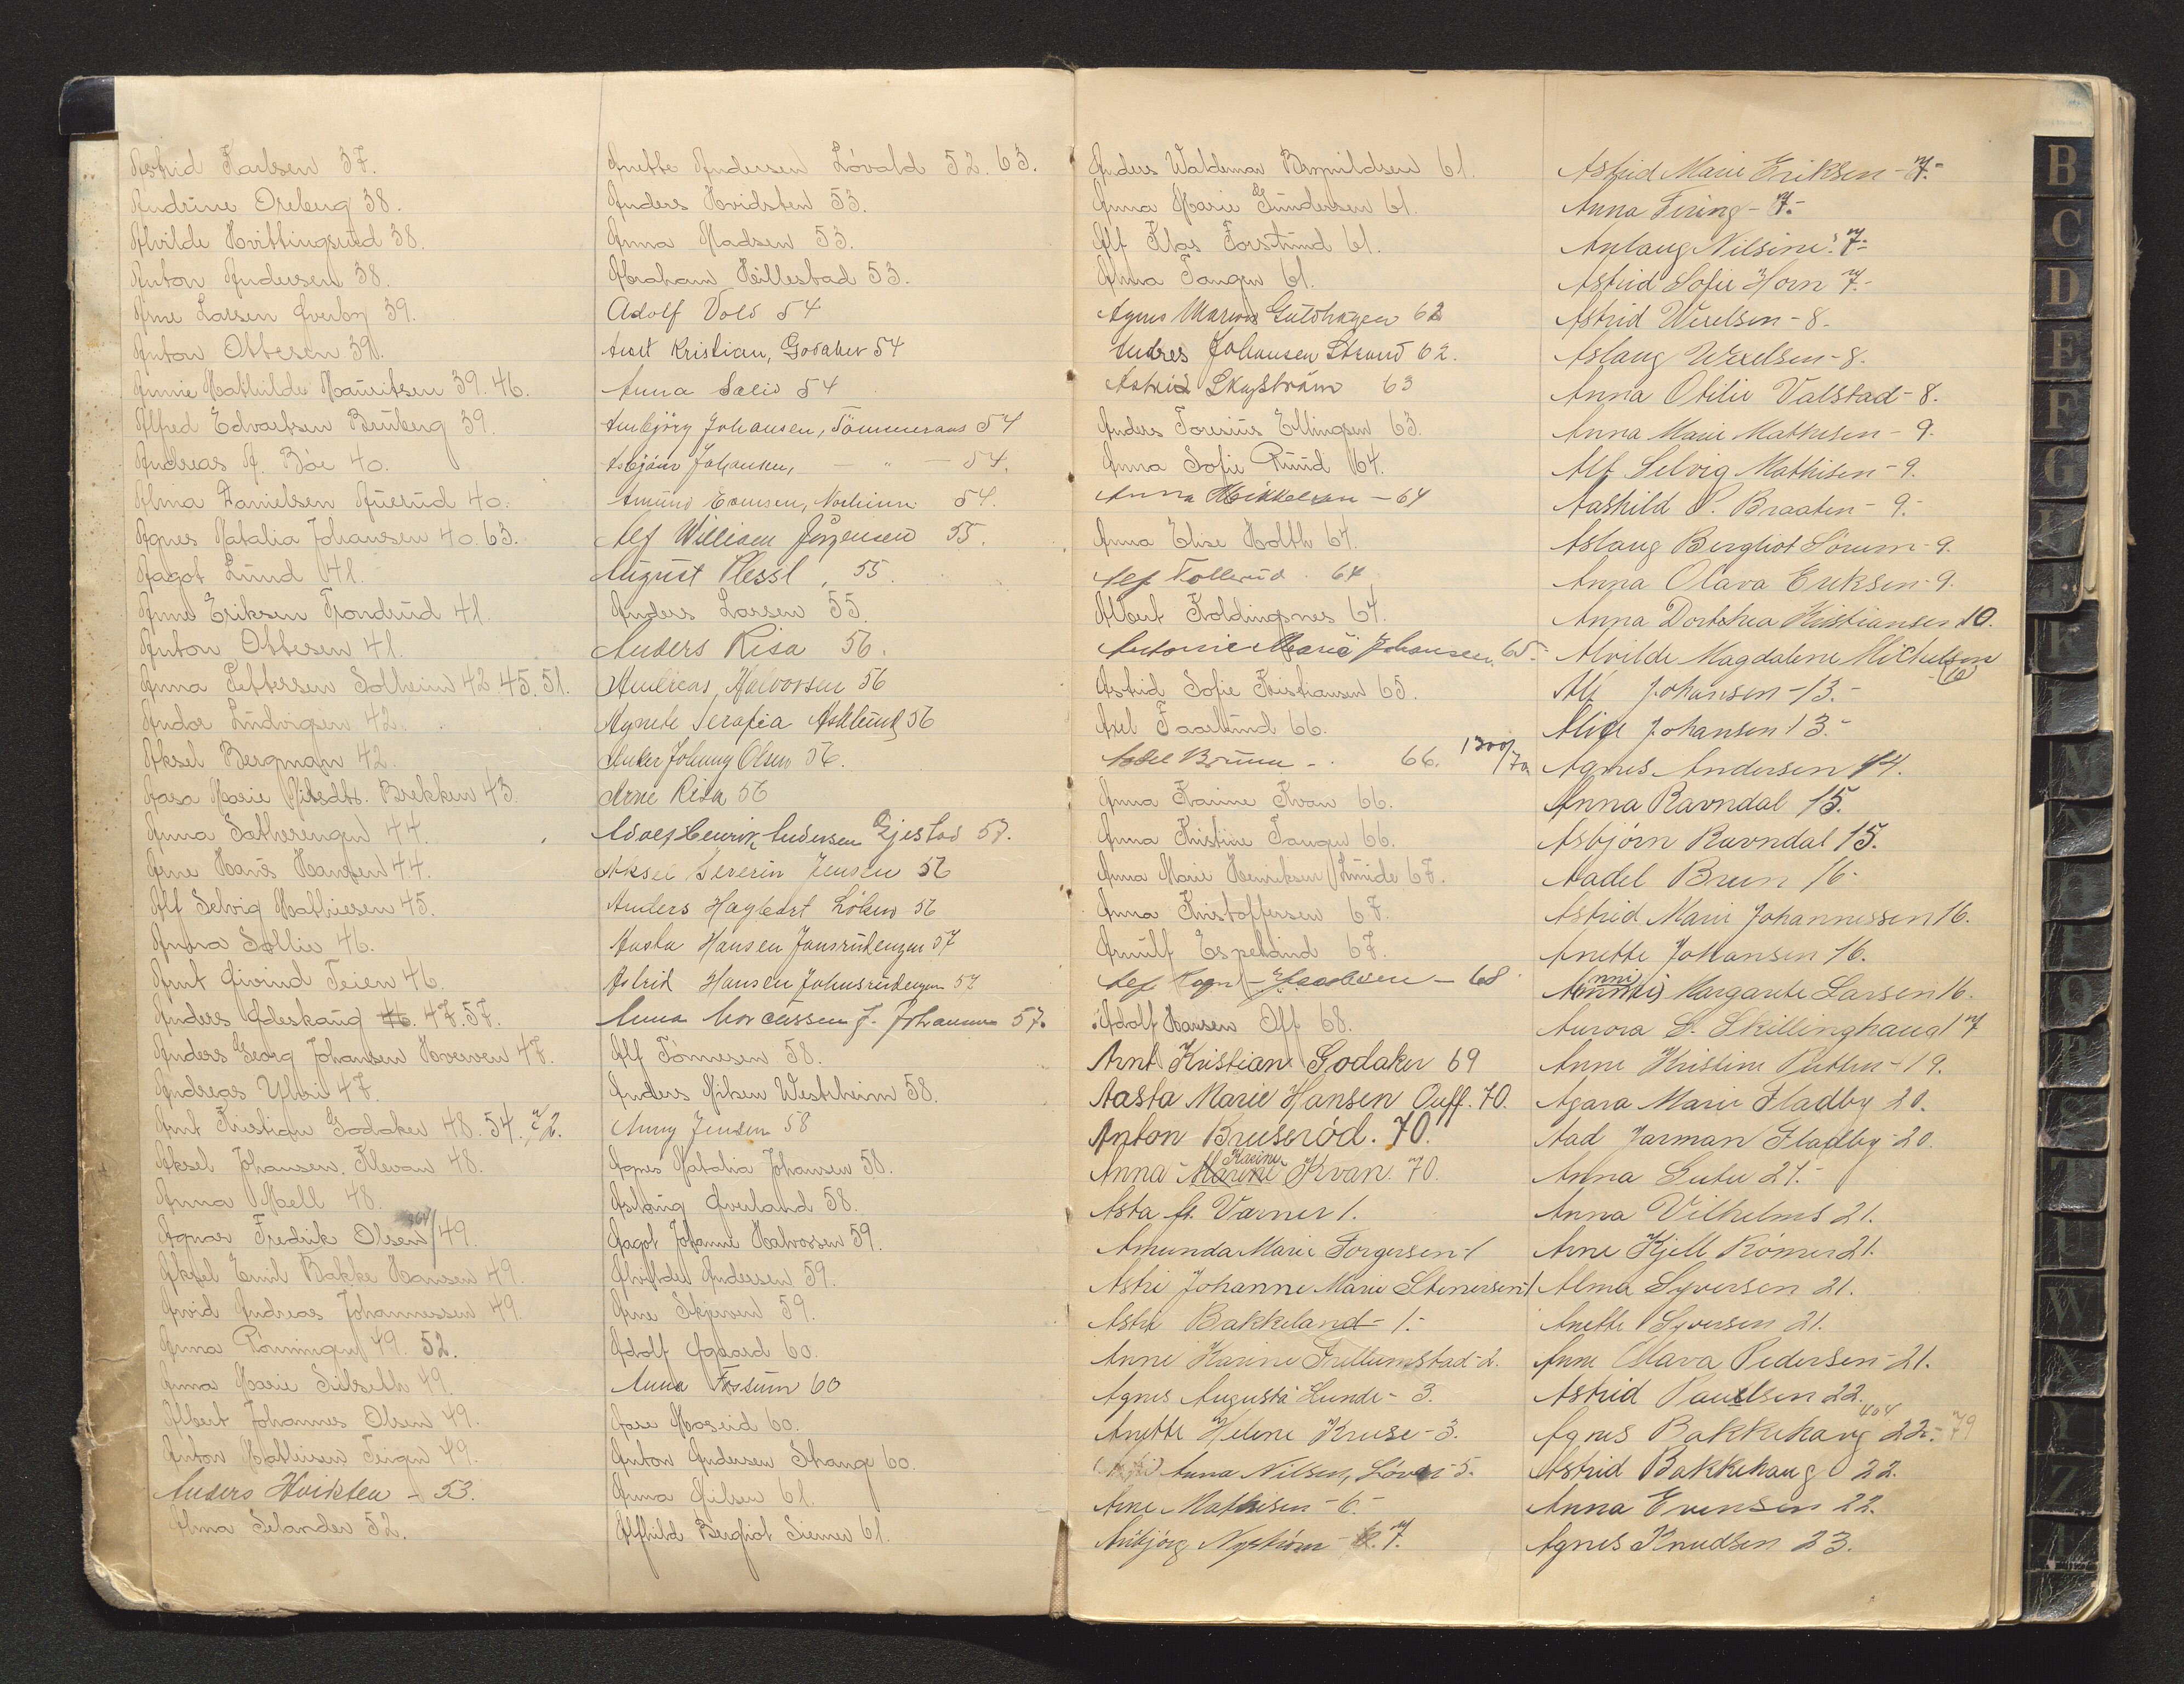 Astrid Karlsen 37.
Andrine Oreberg 38.
Alvilde Hvittingsrud 38.
Anton Andersen 38.
Arne Larsen Øverby 39.
Anton Ottesen 39.
Annie Mathilde Mauritsen 39. 46.
Alfred Edvartsen Bruberg 39.
Andreas A. Bøe 40.
Alma Danielsen 40.
Agnes Natalia Johansen 40. 63.
Aagot Lund 41.
Anne Eriksen Trondrud 41.
Anton Ottesen 41.
Anna Pettersen Solheim 42. 45. 51.
Andor Ludvigsen 42.
Aksel Bergman 42.
Aasa Marie Brekken 43.
Anna Sætherengen 44.
Arne Hans Hansen 44.
Alf Selvig Mathiesen 45.
Anna Sollie 46.
Arnt Øivind Teien 46.
Anders 46. 47. 57.
Anders Georg Johansen Hverven 47.
Andreas 47.
Arnt Kristian Godaker 48. 54. 72.
Aksel Johansen, Klevan 48.
Anna Moell 48.
Agnar Fredrik Olsen 49.
Aksel Emil Bakke Hansen 49.
Arvid Andreas Johannessen 49.
Anna Rønningen 49. 52.
Anna Marie Sulseth 49.
Albert Johannes Olsen 49.
Anton Mathisen Teigen 49.
Anders Hvidsten - 53.
Alma Selander 52.
Anette Andersen Løvald 52. 63.
Anders Hvidsten 53.
Anna Madsen 53.
Abraham Hillestad 53.
Adolf Vold 54
Arnt Kristian, Godaker 54
Anna Salid 54
Annbjørg Johansen, Tømmeraas 54
Asbjørn Johansen, — " — 54.
Amund Evensen, 54.
Alf William Jørgensen 55.
August Plessl, 55.
Anders Larsen 55.
Anders Risa 56.
Andreas, Halvorsen 56
Agnete Serafia Asklund 56
Anker Johnny Olsen 56.
Arne Risa 56
Adolf Henrik Andersen Gjestad 57.
Aksel Severin Jensen 56
Anders Hagbart Løken 56
Aasta Hansen Jansrudengen 57
Astrid Hansen Johnsrudengen 57
Anna Marcussen f. Johansen 57.
Alf Tønnesen 58.
Anders Nilsen Westrheim 58.
Anny Jensen 58
Agnes Natalia Johansen 58.
Aslaug Øverland 58.
Aagot Johanne Halvorsen 59.
Alvilde Andersen 59.
Arne Skjerven 59.
Adolf Ødgaard 60.
Anna Fossum 60
Aase Moseid 60.
Anton Andersen Skange 60.
Anna Nilsen 61.
Alfhild Bergliot Siemer 61.
Anders Waldemar Brynildsen 61.
Anna Marie Gundersen 61.
Alf Klas Forslund 61.
Anna Tangen 61.
Agnes Marion Guldhagen 62
Andres Johansen Strand 62.
Astrid Skogstrøm 63
Anders Toresius Ellingsen 63.
Anna Sofie Ruud 64.
Anna Mikkelsen - 64
Anna Elise Holth 64.
Alf Tollerud. 64
Albert Koldingsnes 64.
Antonie Marie Johansen, 65.
Astrid Sofie Kristiansen 65.
Axel Faarlund 66.
Aadel Brunn - . 66. 1300/70
Anna Karine Kvan 66.
Anna Kristine Tangen 66.
Anna Marie Henriksen Lunde 67.
Anna Kristoffersen 67.
Arnulf Espeland 67.
Alf Roger Jacobsen - 68
Adolf Hansen Off 68.
Arnt Kristian Godaker 69
Aasta Marie Hansen Ouff. 70.
Anton Bruserød. 70.
Anna Marine Karine Kvan. 70.
Asta fr. Varner 1.
Amunda Marie Torgersen - 1
Astri Johanne Marie Stenersen - 1
Astri Bakkeland - 1.-
Anne Karine Frellumstad - 2.
Agnes Augusta Lunde - 3.
Anette Helene Kruse - 3.
Anna Nilsen, Løver - 5.
Arne Mathisen - 6.-
Anbjørg Nystrøm - 7.
Astrid Marie Eriksen - 7.-
Anna Tiring - 7.-
Anlaug Nilsine: 7.-
Astrid Sofie Horn 7.-
Astrid Werelsen - 8.
Aslaug Werelsen - 8.
Anna Otilie Valstad - 8.
Anna Marie Mathisen - 9.
Alf Selvig Mathisen - 9.
Aashild P. Braaten - 9.
Aslaug Bergliot Sørum - 9.
Anna Olava Eriksen - 9.
Anna Dorthea Kristiansen 10.
Alvilde Magdalene Michelsen (10)
Alf Johansen - 13.-
Alice Johansen 13.-
Agnes Andersen 14.
Anna Ravndal 15.
Asbjørn Ravndal 15.
Aadel Brun 16-
Astrid Marie Johannessen 16.
Anette Johansen 16.
Anni Margarete Larsen 16.
Aurora S. Skillinghaug 17
Anne Kristine Pütten - 19.
Agara Marie Fladby 20.
Aad Jarman Fladby - 20.
Anna Lutu 21.-
Anna Vilhelms 21.
Arne Kjell Rømer 21.
Alma Syversen 21.
Anette Syversen 21.
Anne Olava Pedersen - 21.
Astrid Paulsen 22.
Agnes Bakkehaug 22.- 404 79
Astrid Bakkehaug 22.
Anna Evensen 22.
Agnes Knudsen 23.
B
C
D
E
F
G
K
L
M
N
O
P
Q
R
S
T
U
V
W
X
Y
Z